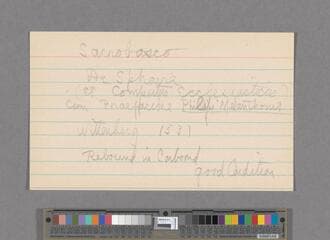 Sacrobosco
De Sphaera
(et Computus Ecclesiasticus)
Cum Praefacione Philippi Melanthonis
Wittenberg 1531
Rebound in Carbond
good Condition